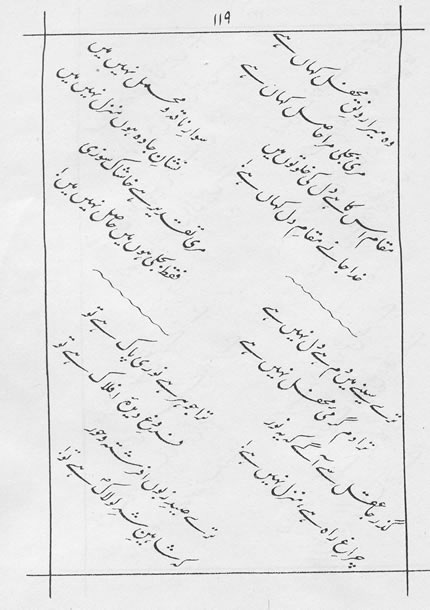 ۱۱۹
وہ میرا رونقِ محفل کہاں ہے
مری بجلی مرا حاصل کہاں ہے
مقام اس کا ہے دل کی خلوتوں میں
خدا جانے مقامِ دل کہاں ہے!
سوارِ ناقہ و محمل نہیں میں
نشانِ جادہ ہوں منزل نہیں میں
مری تقدیر ہے خاشاک سوزی
فقط بجلی ہوں میں حاصل نہیں میں!
ترے سینے میں دم ہے دل نہیں ہے
ترا دم گرمیِ محفل نہیں ہے
گذر جا عقل سے آگے کہ یہ نور
چراغِ راہ ہے منزل نہیں ہے!
ترا جوہر ہے نوری پاک ہے تو
فروغِ دیدۂ افلاک ہے تو
ترے صیدِ زبوں افرشتہ و حور
کہ شاہینِ شہِ لولاک ہے تو!